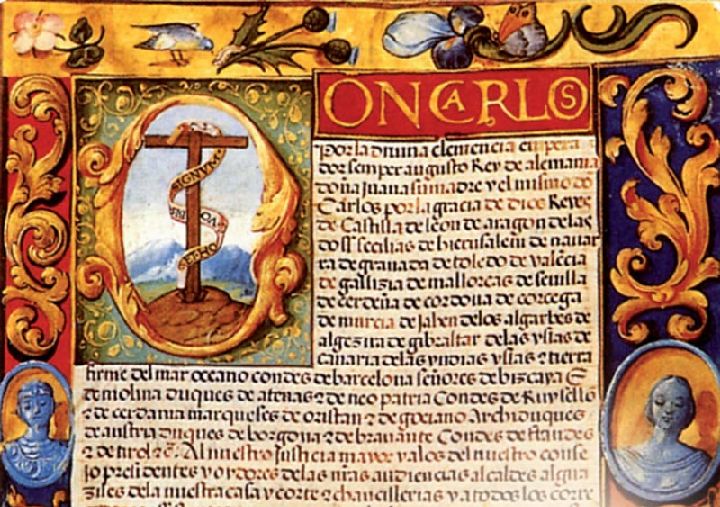 ONCARLOS
por la diuina clemencia empera
dor semper augusto Rey de alemania
doña Juana su madre y el mismo do
Carlos por la gracia de dios Reyes
de Castilla de leon de aragon de las
dos secilias de hierusalem de nauar
ra de granada de toledo de valecia
de gallizia de mallorcas de seuilla
de cerdeña de cordoua de corcega
de murcia de Jahen de los algarbes de
algezira de gibraltar de las yslas de
canaria de las yndias yslas z tierra
firme del mar oceano condes de barcelona señores de bizcaya E
de molina duques de atenas z de neo patria Condes de Ruysellō
z de cerdania marqueses de oristan z de gociano Archiduques
de austria duques de borgoña z de brauante Condes de flandes
z de tirol zc. Al nuestro Justicia mayor y a los del nuestro conse
jo presidentes y oydores de las nras audiencias alcaldes algua
ziles de la nuestra casa y corte z chancillerias y a todos los corre